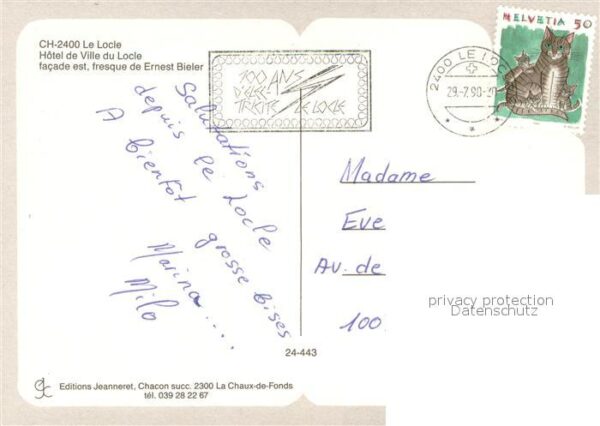 CH-2400 Le Locle
Hôtel de Ville du Locle
façade est, fresque de Ernest Bieler
100 ANS
D'ÉLEC
TRICITÉ LE LOCLE
2400 LE LOCLE
29.-7.90
HELVETIA 50
Salutations
depuis le Locle
A bientot grosse bises
Marina....
Milo
Madame
Eve
Av. de
100
privacy protection
Datenschutz
24-443
Editions Jeanneret, Chacon succ. 2300 La Chaux-de-Fonds
tél. 039 28 22 67